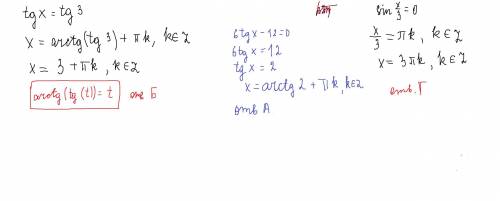 tg x = tg 3
x = arctg(tg 3) + πk, k∈Z
x = 3 + πk, k∈Z
arctg(tg(t)) = t отв Б
6tg x - 12 = 0
6tg x = 12
tg x = 2
x = arctg 2 + πk, k∈Z
отв А
sin x/3 = 0
x/3 = πk, k∈Z
x = 3πk, k∈Z
отв. Г